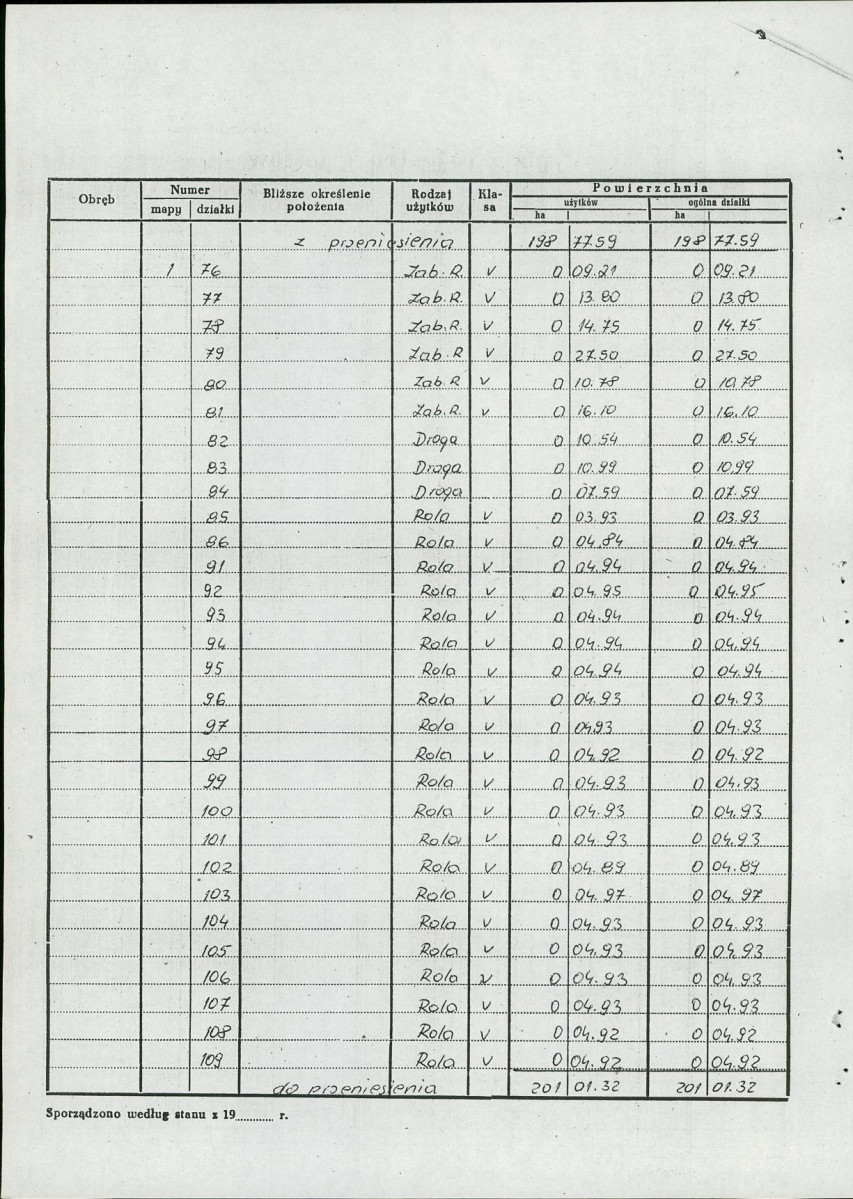 Obręb Numer Bliższe określenie położenia Rodzaj użytków Kla-sa Powierzchnia
mapy działki użytków ogólna działki
ha ha
z przeniesienia 198 77.59 198 77.59
1 76 Zab. R. V 0 09.21 0 09.21
77 Zab. R. V 0 13.80 0 13.80
78 Zab. R. V 0 14.75 0 14.75
79 Zab. R V 0 27.50 0 27.50
80 Zab. R V 0 10.78 0 10.78
81 Zab. R. V 0 16.10 0 16.10
82 Droga 0 10.54 0 10.54
83 Droga 0 10.99 0 10.99
84 Droga 0 07.59 0 07.59
85 Rola V 0 03.93 0 03.93
86 Rola V 0 04.84 0 04.84
91 Rola V 0 04.94 0 04.94
92 Rola V 0 04.95 0 04.95
93 Rola V 0 04.94 0 04.94
94 Rola V 0 04.94 0 04.94
95 Rola V 0 04.94 0 04.94
96 Rola V 0 04.93 0 04.93
97 Rola V 0 04.93 0 04.93
98 Rola V 0 04.92 0 04.92
99 Rola V 0 04.93 0 04.93
100 Rola V 0 04.93 0 04.93
101 Rola V 0 04.93 0 04.93
102 Rola V 0 04.89 0 04.89
103 Rola V 0 04.97 0 04.97
104 Rola V 0 04.93 0 04.93
105 Rola V 0 04.93 0 04.93
106 Rola V 0 04.93 0 04.93
107 Rola V 0 04.93 0 04.93
108 Rola V 0 04.92 0 04.92
109 Rola V 0 04.92 0 04.92
do przeniesienia 201 01.32 201 01.32
Sporządzono według stanu z 19.......... r.